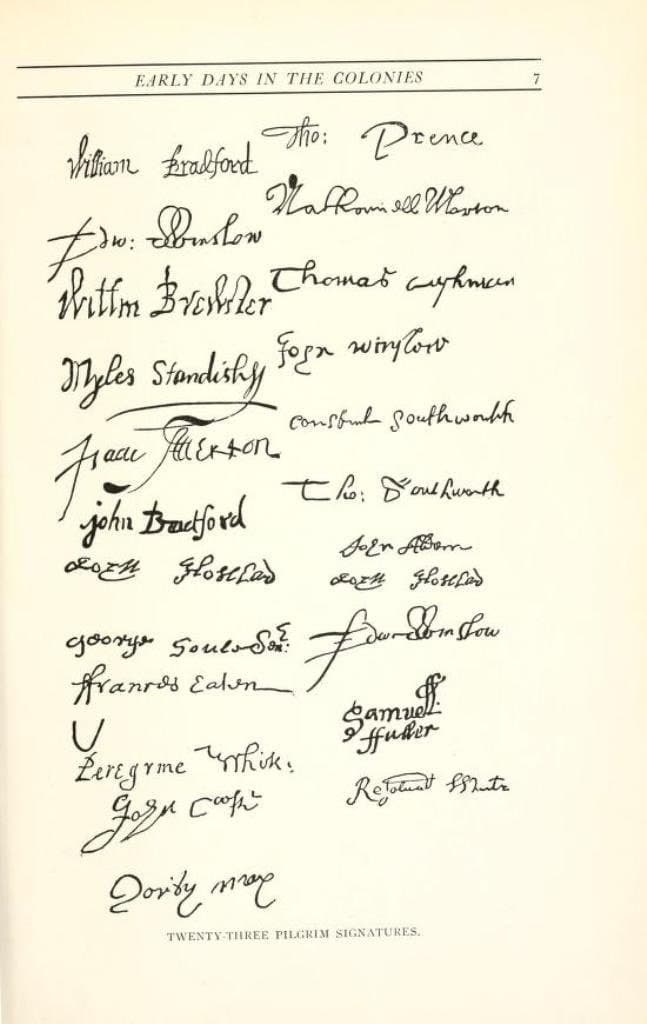 EARLY DAYS IN THE COLONIES 7
William Bradford
Tho: Prence
Nathaniell Morton
Edw: Winslow
Thomas Cushman
Willm Brewster
John Winslow
Myles Standish
Constant Southworth
Isaac Allerton
Tho: Southworth
John Bradford
John
John Howland
John Howland
George Soule Sen:
Edw: Winslow
Francis Eaton
Samuell
ffuller
Peregrine White
Resolved White
John Cooke
Dorithy may
TWENTY-THREE PILGRIM SIGNATURES.